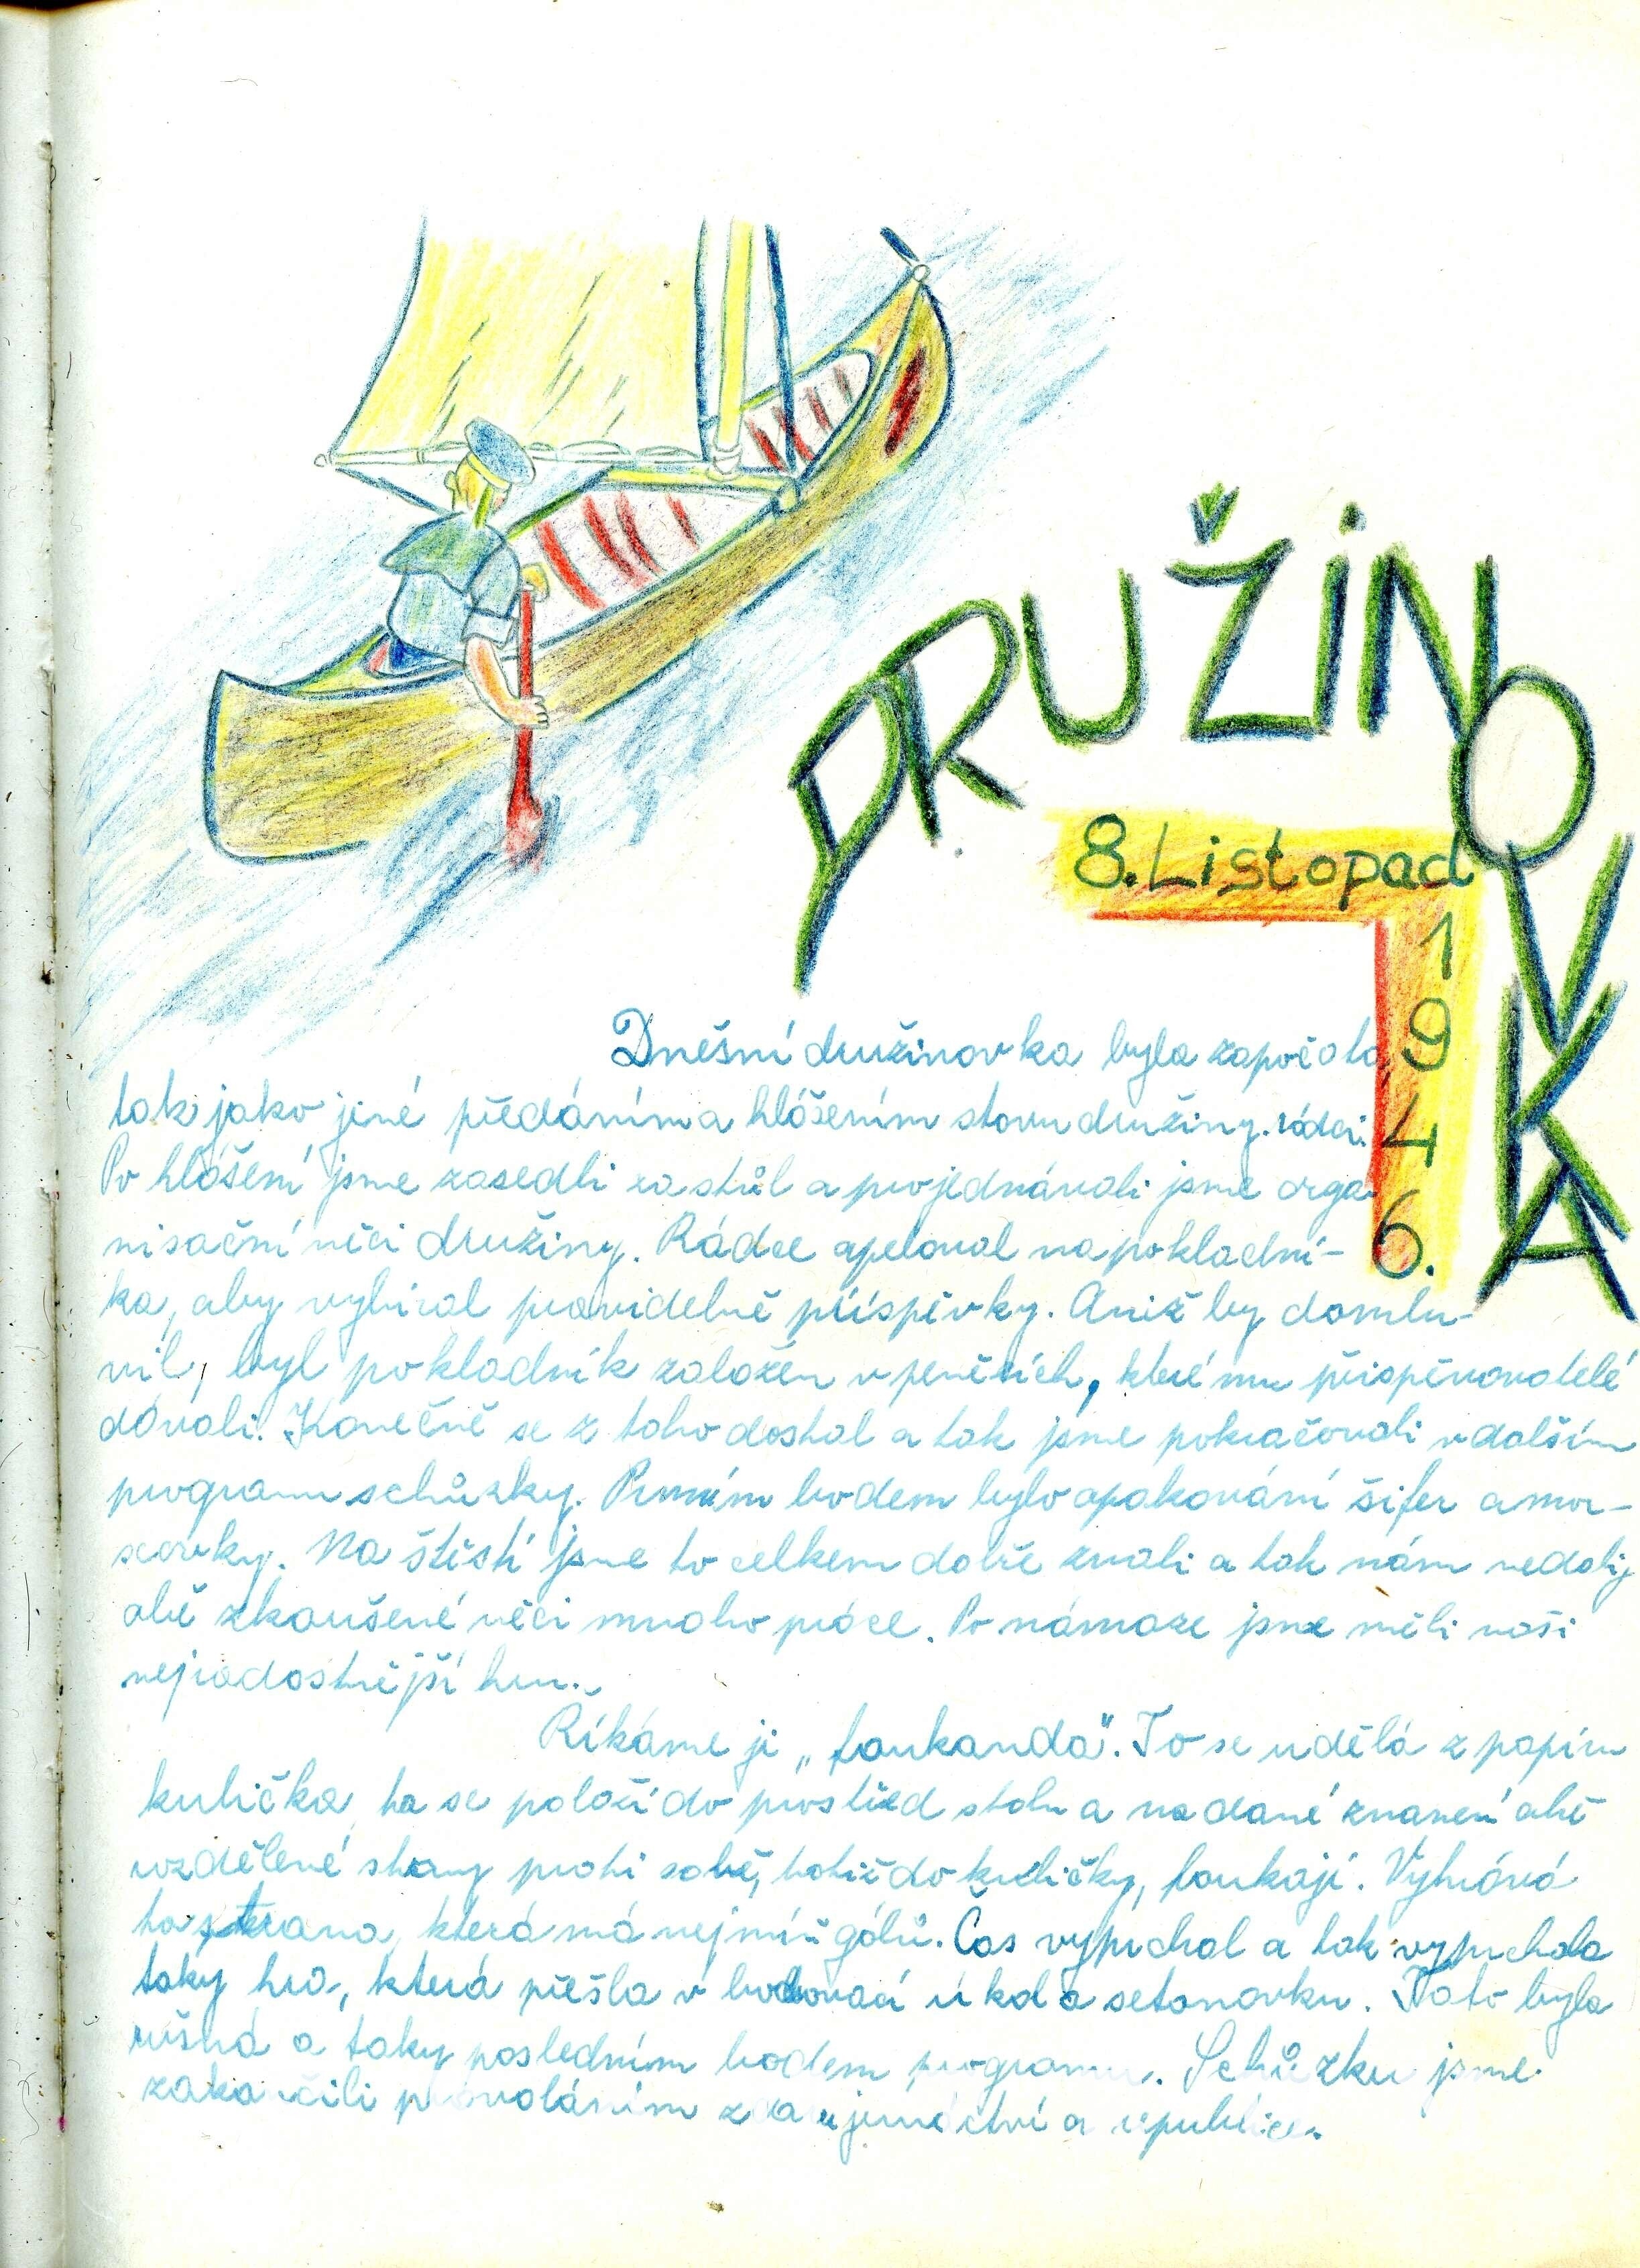 DRUŽINOVKA
8. Listopad
1946.
Dnešní družinovka byla započata
tak jako jiné předáním a hlášením stavu družiny rádci.
Po hlášení jsme zasedli za stůl a projednávali jsme orga-
nisační věci družiny. Rádce apeloval na pokladní-
ka, aby vybíral pravidelně příspěvky. Aniž by domlu-
vil, byl pokladník založen v penězích, které mu přispěvovatelé
dávali. Konečně se z toho dostal a tak jsme pokračovali v dalším
programu schůzky. Prvním bodem bylo opakování šifer a mor-
seovky. Na štěstí jsme to celkem dobře znali a tak nám nedaly
obě zkoušené věci mnoho práce. Po námaze jsme měli naši
nejradostnější hru.
Říkáme ji „foukanda“. To se udělá z papíru
kulička, ta se položí do prostřed stolu a na dané znamení obě
rozdělené strany proti sobě, totiž do kuličky, foukají. Vyhrává
ta strana, která má nejmíň gólů. Čas vyprchal a tak vyprchala
taky hra, která přešla v bodovací úkol a setonovku. Tato byla
rušná a taky posledním bodem programu. Schůzku jsme
zakončili provoláním junáctví a republice.